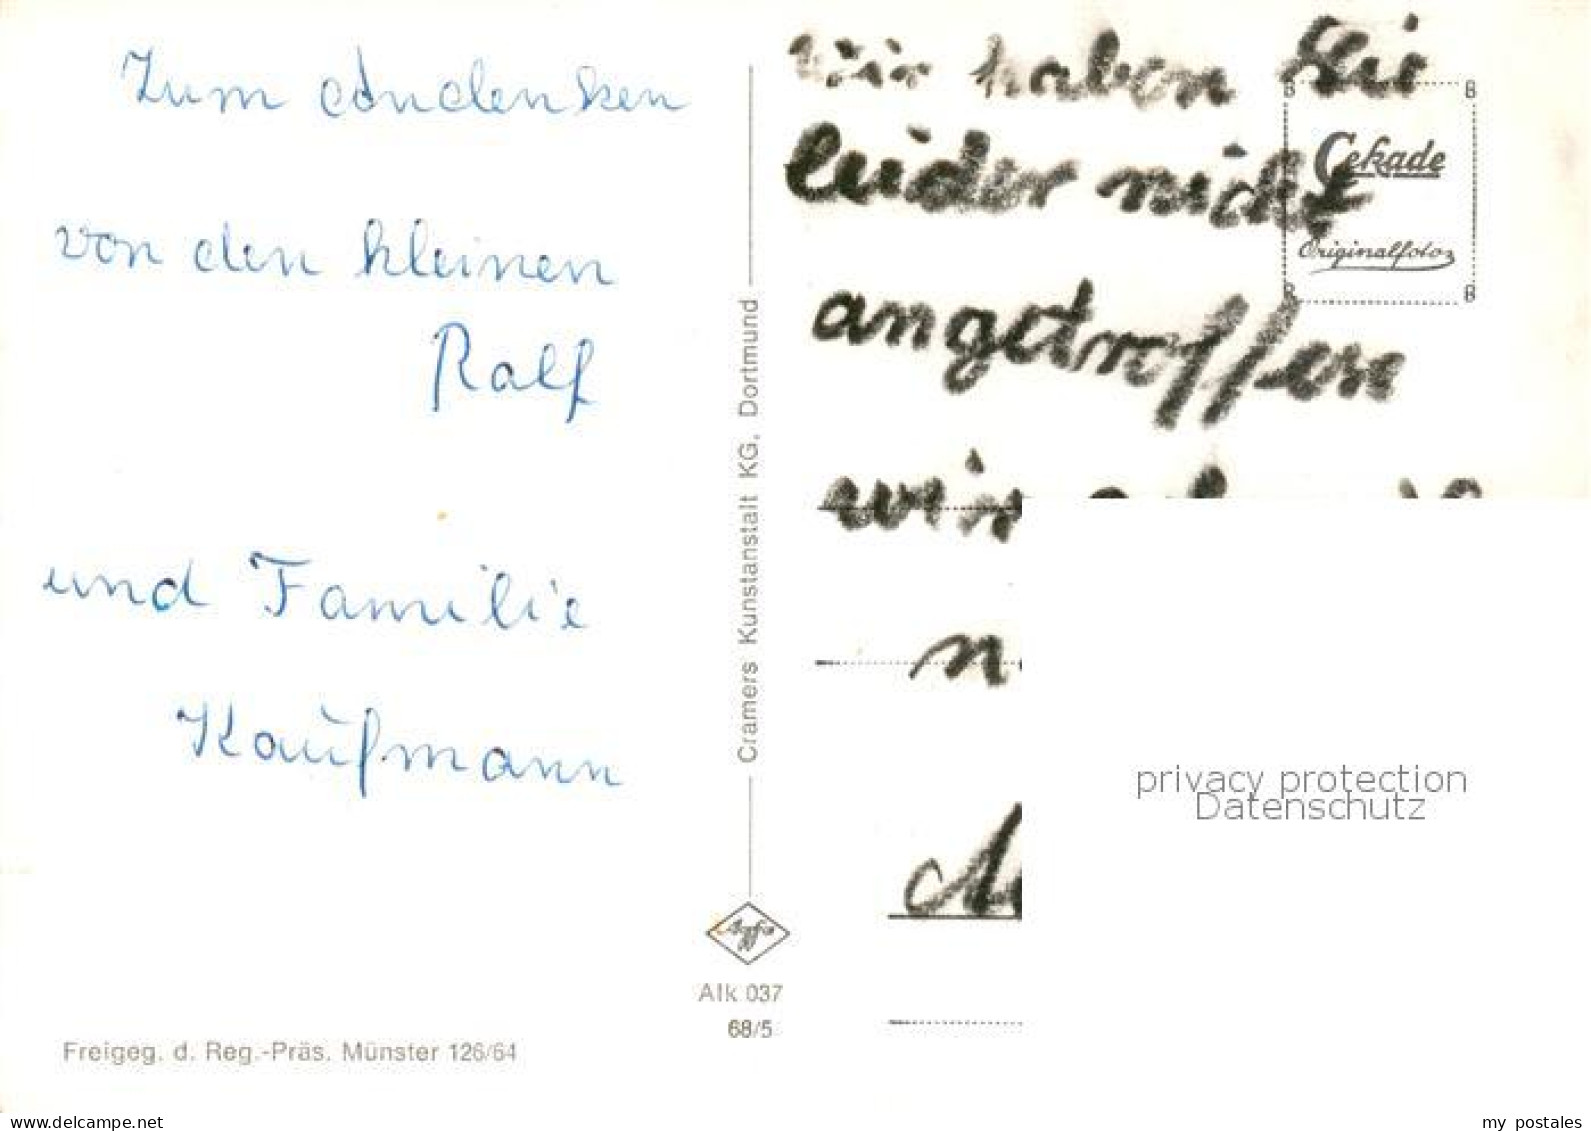 Zum Andenken
von den kleinen
Ralf
und Familie
Kaufmann
Freigeg. d. Reg.-Präs. Münster 126/64
Cramers Kunstanstalt KG, Dortmund
Agfa
Alk 037
68/5
wir haben Sie
leider nicht
angetroffen
wir
Cekade
Originalfoto
privacy protection
Datenschutz
www.delcampe.net
my_postales